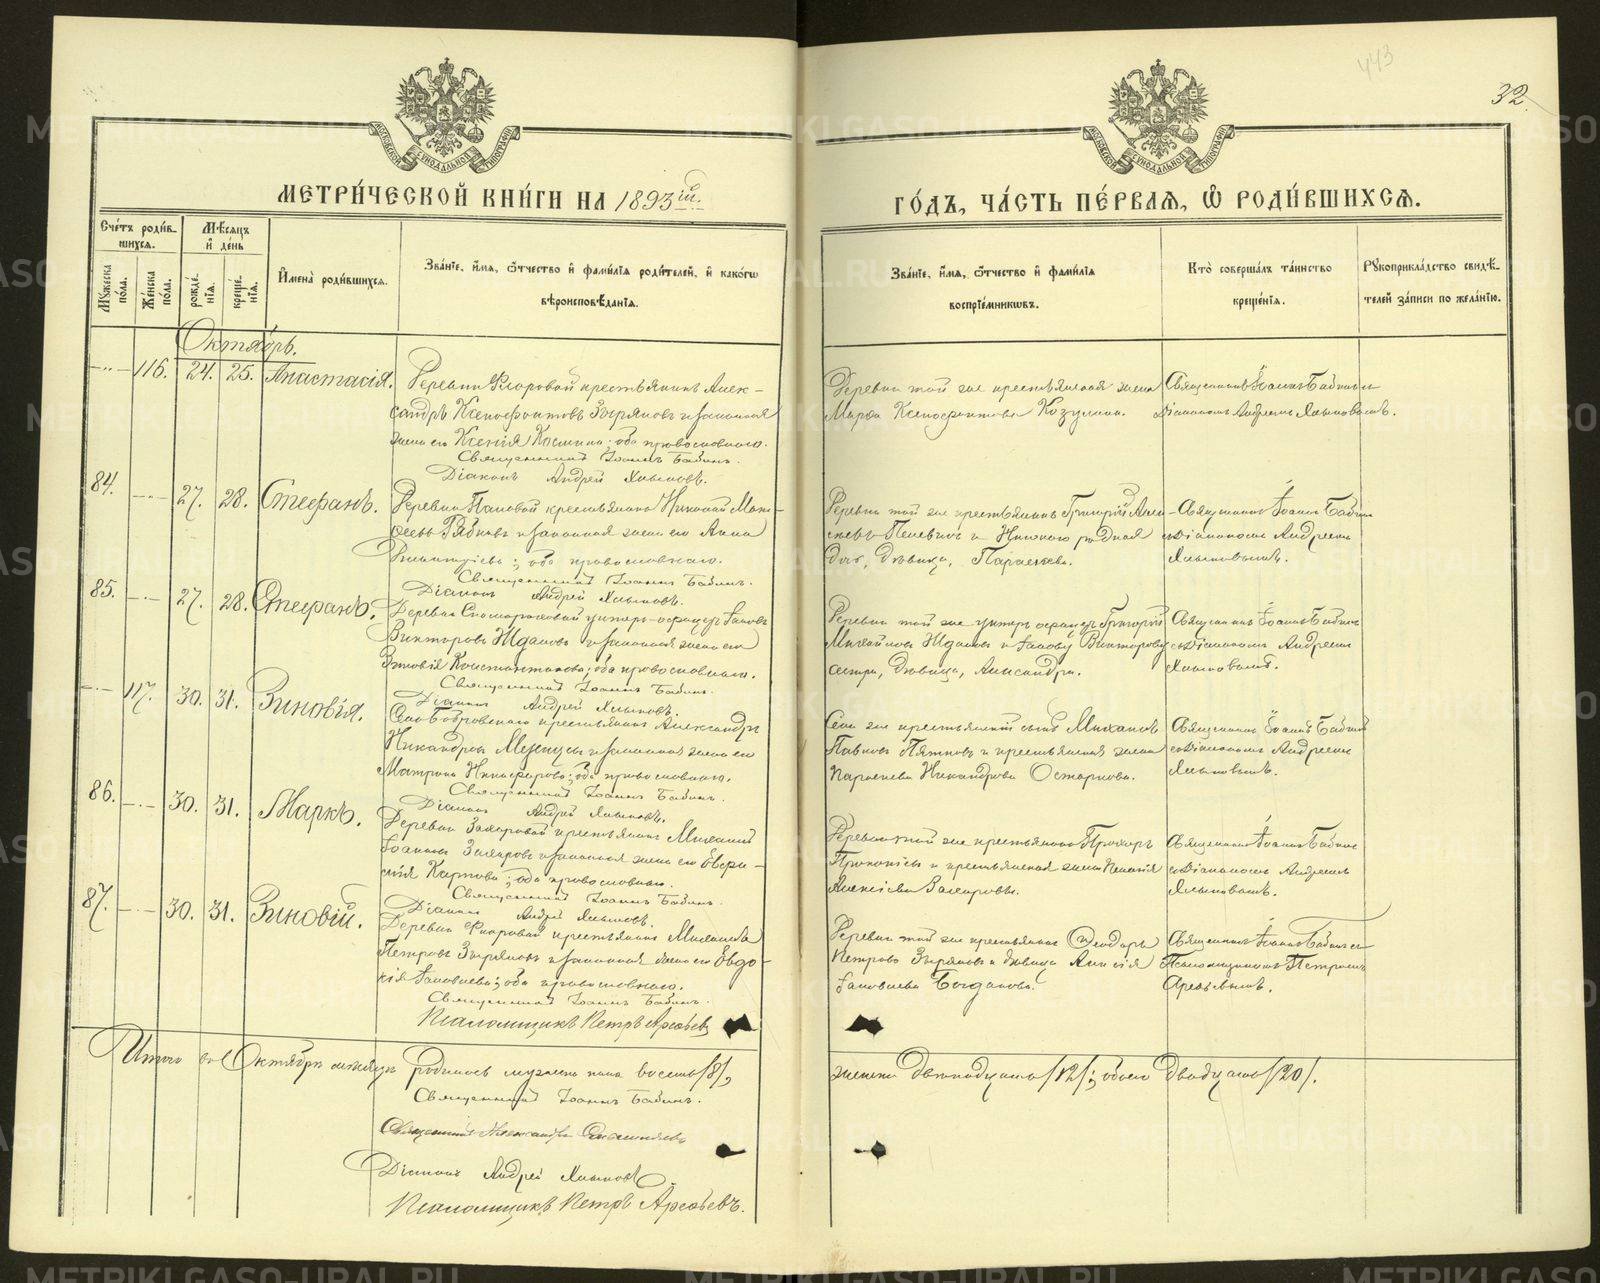 443
32.
МОСКОВСКОЙ СѴНОДАЛЬНОЙ ТИПОГРАФІИ
МОСКОВСКОЙ СѴНОДАЛЬНОЙ ТИПОГРАФІИ
МЕТРИ́ЧЕСКОЙ КНИ́ГИ НА 1893ій.
ГО́ДЪ, ЧА́СТЬ ПЕ́РВАЯ, Ѡ РОДИ́ВШИХСЯ.
Сче́тъ роди́вшихся.
Му́жеска по́ла.
Же́нска по́ла.
Мѣ́сяцъ и҆ де́нь
рожде́нїѧ.
креще́нїѧ.
И҆мена̀ роди́вшихсѧ.
Зва́нїе, и҆́мѧ, ѻ҆́тчество и҆ фамі́лїѧ роди́телей, и҆ како́гѡ
вѣроисповѣ́данїѧ.
Зва́нїе, и҆́мѧ, ѻ҆́тчество и҆ фамі́лїѧ
воспрїе́мникѡвъ.
Кто̀ соверша́лъ та́инство
креще́нїѧ.
Рꙋкоприкла́дство свидѣ́-
телей за́писи по жела́нїю.
Октябрь.
-"- 116. 24. 25. Анастасія.
Деревни Флоровой крестьянинъ Алек-
сандръ Ксенофонтовъ Зырянов и законная
жена его Ксенія Космина; оба православнаго.
Священникъ Іоаннъ Бабинъ.
Діаконъ Андрей Хлыновъ.
Деревни той же крестьянская жена
Марѳа Ксенофонтова Козулина.
Священникъ Іоаннъ Бабинъ съ
Діакономъ Андреемъ Хлыновымъ.
84. -"- 27. 28. Стефанъ.
Деревни Пановой крестьянинъ Николай
Рябковъ и законная жена его Анна
; оба православнаго.
Священникъ Іоаннъ Бабинъ.
Діаконъ Андрей Хлыновъ.
Деревни той же крестьянинъ Григорій
и Николаю родная
дочь, дѣвица, Параскева.
Священникъ Іоаннъ Бабинъ
съ Діакономъ Андреемъ
Хлыновымъ.
85. -"- 27. 28. Стефанъ.
Деревни унтеръ-офицеръ Іаковъ
Викторовъ Ждановъ и законная жена его
Зиновія Константинова; оба православнаго.
Священникъ Іоаннъ Бабинъ.
Діаконъ Андрей Хлыновъ.
Деревни той же унтеръ офицеръ Григорій
Михайловъ Ждановъ и Іакову Викторову
сестра, дѣвица, Александра.
Священникъ Іоаннъ Бабинъ
съ Діакономъ Андреемъ
Хлыновымъ.
-"- 117. 30. 31. Зиновія.
Села Бобровскаго крестьянинъ Александръ
Никандровъ и законная жена его
Матрона Никифорова; оба православнаго.
Священникъ Іоаннъ Бабинъ.
Діаконъ Андрей Хлыновъ.
Села же крестьянскій сынъ Михаилъ
Павловъ Пятковъ и крестьянская жена
Параскева Никандрова
Священникъ Іоаннъ Бабинъ
съ Діакономъ Андреемъ
Хлыновымъ.
86. -"- 30. 31. Маркъ.
Деревни Захаровой крестьянинъ Михаилъ
Іоанновъ Захаровъ и законная жена его Евфи-
мія Карпова; оба православнаго.
Священникъ Іоаннъ Бабинъ.
Діаконъ Андрей Хлыновъ.
Деревни той же крестьянинъ Прохоръ
Прокопіевъ и крестьянская жена Пелагія
Алексіева Захарова.
Священникъ Іоаннъ Бабинъ
съ Діакономъ Андреемъ
Хлыновымъ.
87. -"- 30. 31. Зиновій.
Деревни Флоровой крестьянинъ Михаилъ
Петровъ Зыряновъ и законная жена его Евдо-
кія Іаковлева; оба православнаго.
Священникъ Іоаннъ Бабинъ.
Псаломщикъ Петръ Арефьевъ
Деревни той же крестьянинъ Ѳеодоръ
Петровъ Зыряновъ и дѣвица Анисія
Іаковлева Богданова.
Священникъ Іоаннъ Бабинъ съ
Псаломщикомъ Петромъ
Арефьевымъ.
Итого въ Октябрѣ мѣсяцѣ родилось мужеска пола восемь /8/,
женска двѣнадцать /12/; обоего двадцать /20/.
Священникъ Іоаннъ Бабинъ.
Священникъ Александръ
Діаконъ Андрей Хлыновъ
Псаломщикъ Петръ Арефьевъ.
METRIKI.GASO-URAL.RU